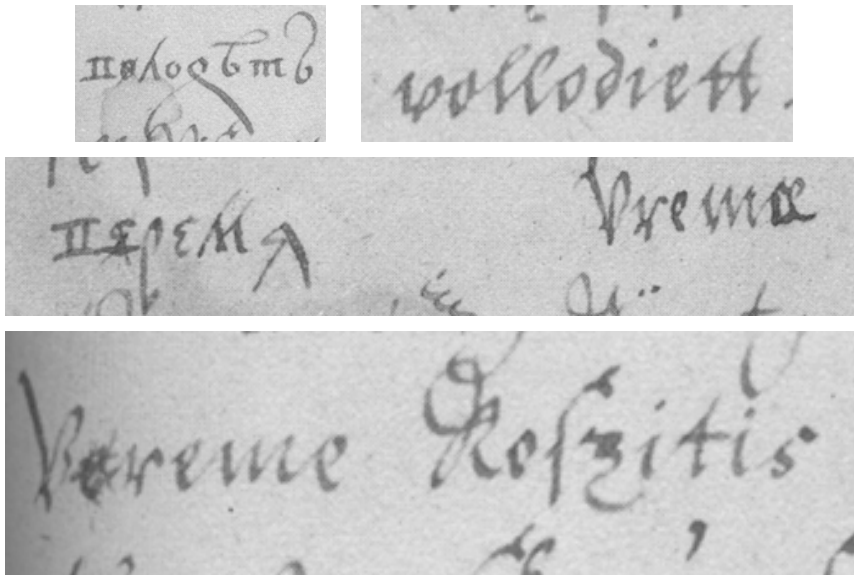 володѣтъ vollodiett.
веремѧ Vremæ
Vereme Roſzitis